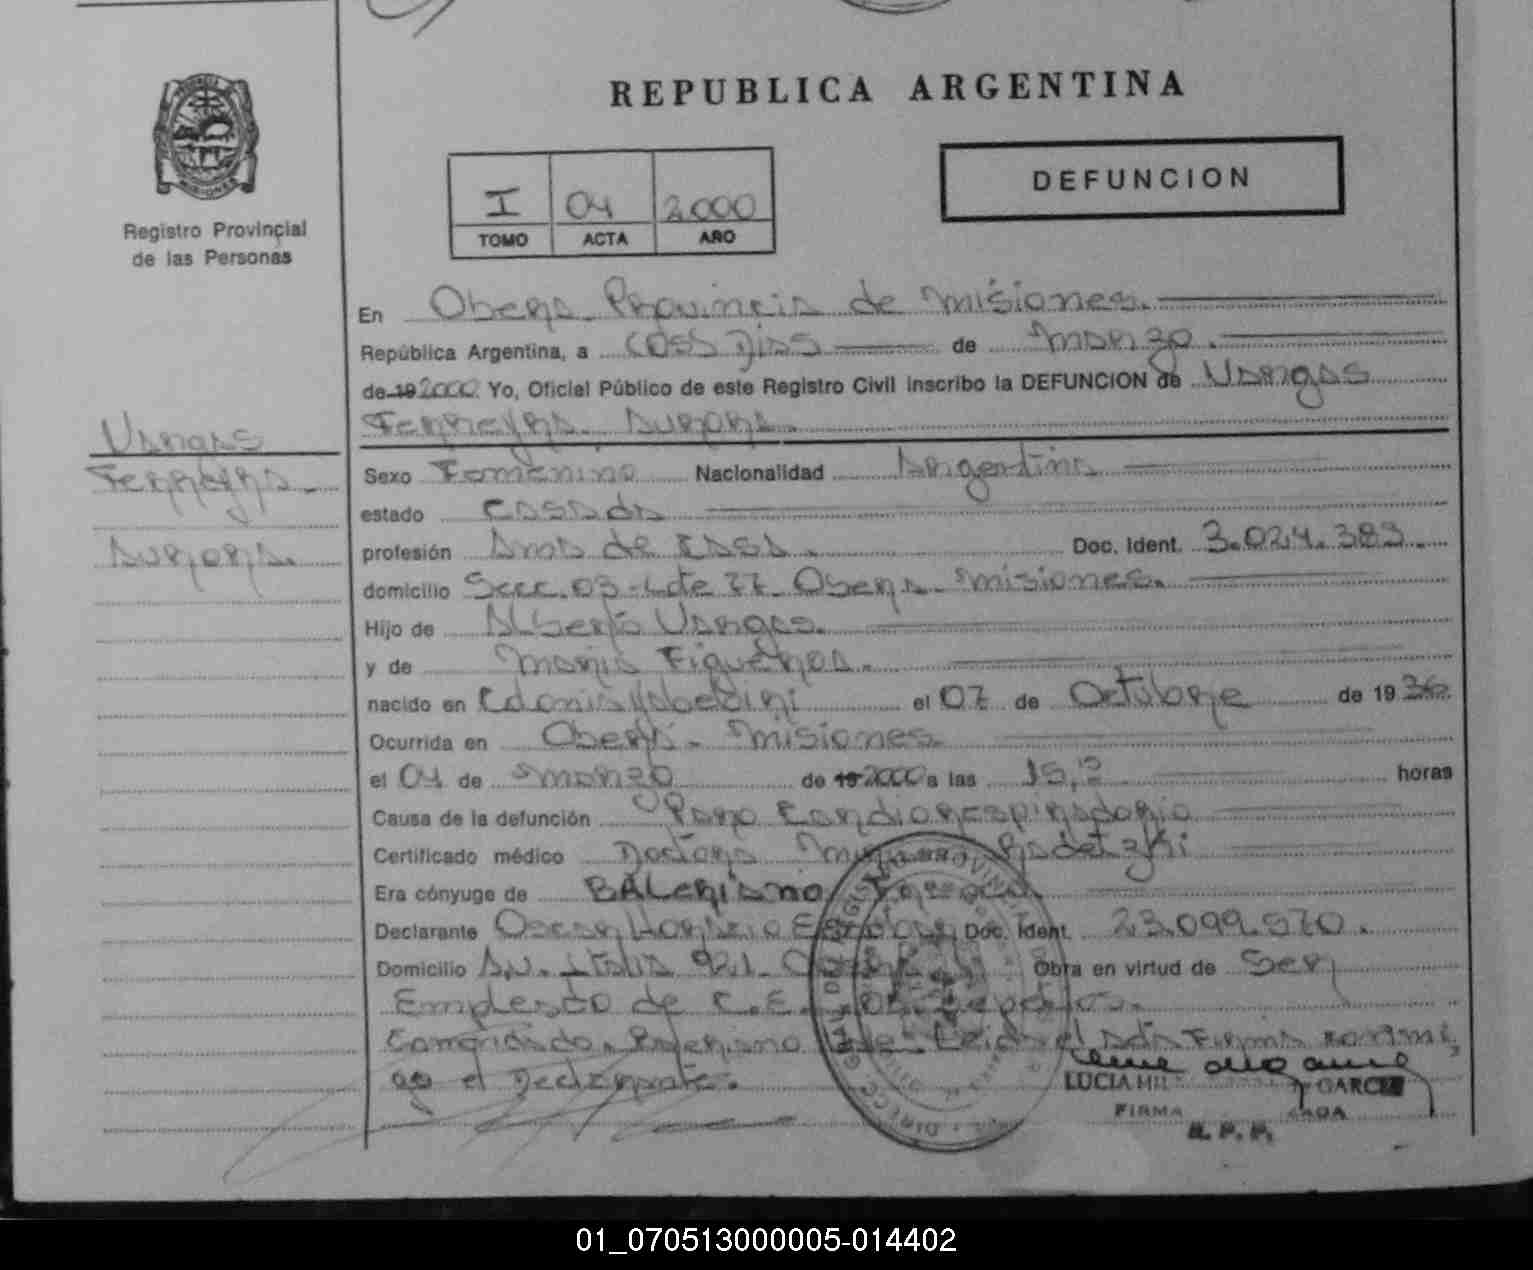 REPUBLICA ARGENTINA
PROVINCIA
MISIONES
Registro Provincial
de las Personas
I 04 2.000
TOMO ACTA AÑO
DEFUNCION
En Obera. Provincia de Misiones.
República Argentina, a Dias de Marzo.
de 19 2000. Yo, Oficial Público de este Registro Civil inscribo la DEFUNCION de Vargas
Ferreyra. Aurora.
Vargas
Ferreyra.
Aurora.
Sexo Femenino Nacionalidad Argentina
estado Casada
profesión Ama de Casa. Doc. Ident. 3.024.383.
domicilio Secc. 03 - Lote 77. Obera. Misiones.
Hijo de Alberto Vargas.
y de Maria Figueroa.
nacido en Colonia el 07 de Octubre de 19 36.
Ocurrida en Obera. Misiones.
el 04 de Marzo de 19 2000 a las 15, horas
Causa de la defunción Paro Cardiorespiratorio
Certificado médico Doctora Radetzki
Era cónyuge de
Declarante Oscar Horacio Doc. Ident. 23.099.570.
Domicilio Av. Italia 921. Obra en virtud de Ser
Empleado de C.E.
el acta Firma
el Declarante.
LUCIA GARCIA
FIRMA
R. P. P.
01_070513000005-014402